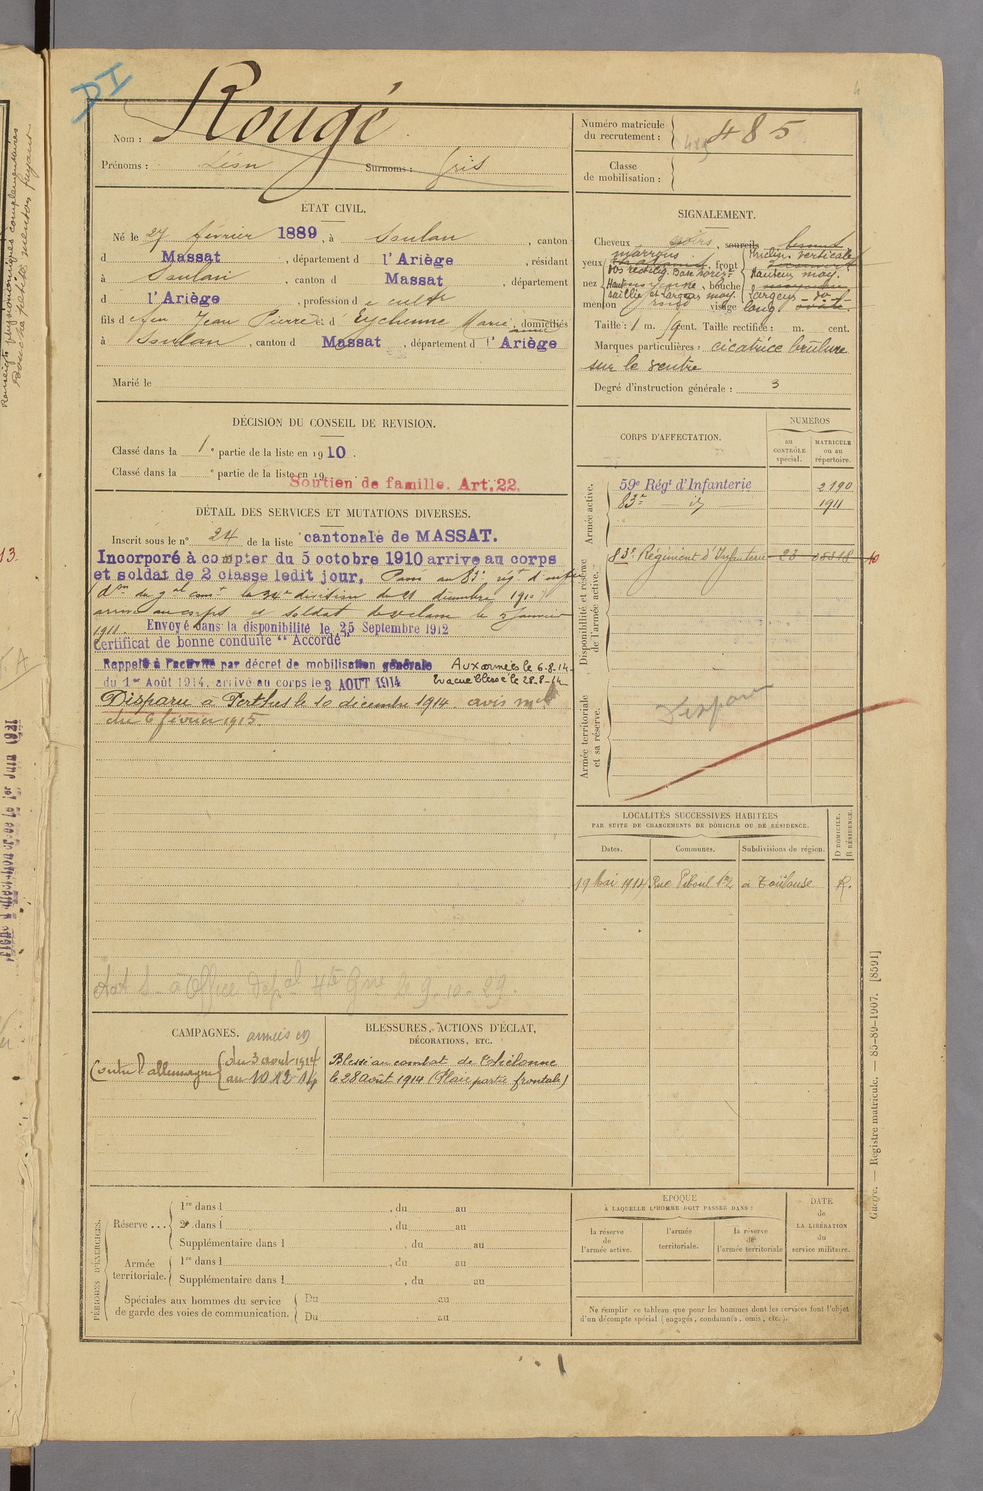 DI
Nom : Rougé
Prénoms : Léon Surnoms : Gris
Numéro matricule du recrutement : 485
485
Classe de mobilisation :
ÉTAT CIVIL.
Né le 27 février 1889, à Soulan, canton
d Massat, département d l'Ariège, résidant
à Soulan, canton d Massat, département
d l'Ariège, profession d e cultr
fils d e feu Jean Pierre et d Eychenne Marie, domiciliés
à Soulan, canton d Massat, département d l'Ariège
Marié le
SIGNALEMENT.
Cheveux noirs, sourcils
yeux marrons, front Inclin. verticale
Hauteur moy.
nez Dos rectilig. Base horizt
Haut moyenne, bouche largeur - do -
saillie et largeur moy.
menton rond visage long ovale.
Taille : 1 m. cent. Taille rectifiée : m. cent.
Marques particulières : cicatrice brûlure
sur le ventre
Degré d'instruction générale : 3
DÉCISION DU CONSEIL DE REVISION.
Classé dans la 1e partie de la liste en 1910.
Classé dans la e partie de la liste en 19
Soutien de famille. Art. 22.
DÉTAIL DES SERVICES ET MUTATIONS DIVERSES.
Inscrit sous le n° 24 de la liste cantonale de MASSAT.
Incorporé à compter du 5 octobre 1910 arrive au corps
et soldat de 2 classe ledit jour, Passé au 83e régt d'infie
(don du gal comt la 34e division du 21 décembre 1910)
arrivé au corps et soldat de 2e classe le 2 janvier
1911. Envoyé dans la disponibilité le 25 Septembre 1912
Certificat de bonne conduite "Accordé"
Rappelé à l'activité par décret de mobilisation générale Aux armées le 6.8.14
du 1er Août 1914, arrivé au corps le 3 AOUT 1914 Evacué blessé le 28-8-14
Disparu à Perthes le 10 décembre 1914. avis mel
du 6 février 1915
CORPS D'AFFECTATION.
NUMÉROS
au CONTRÔLE spécial.
MATRICULE ou au répertoire.
Armée active.
59e Régt d'Infanterie 2190
83e - id 1911
Disponibilité et réserve de l'armée active.
83e Régiment d'Infanterie 23
Armée territoriale et sa réserve.
Disparu
LOCALITÉS SUCCESSIVES HABITÉES
PAR SUITE DE CHANGEMENTS DE DOMICILE OU DE RÉSIDENCE.
Dates. Communes. Subdivisions de région. D DOMICILE. R RÉSIDENCE.
19 Mai 1914 Rue à Toulouse R.
à Office Depal 9-10-29.
CAMPAGNES.
Contre l'allemagne du 3 août 1914
au 10 12 14
BLESSURES, ACTIONS D'ÉCLAT,
DÉCORATIONS, ETC.
Blessé au combat de
le 28 août 1914 (Plaie partie frontale)
PÉRIODES D'EXERCICES.
Réserve ... 1re dans l , du au
2e dans l , du au
Supplémentaire dans l , du au
Armée territoriale. 1re dans l , du au
Supplémentaire dans l , du au
Spéciales aux hommes du service Du au
de garde des voies de communication. Du au
ÉPOQUE
À LAQUELLE L'HOMME DOIT PASSER DANS :
la réserve de l'armée active.
l'armée territoriale.
la réserve de l'armée territoriale
DATE de LA LIBÉRATION du service militaire.
Ne remplir ce tableau que pour les hommes dont les services font l'objet
d'un décompte spécial (engagés, condamnés, omis, etc.).
Guerre. — Registre matricule. — 85-89-1907. [8591]